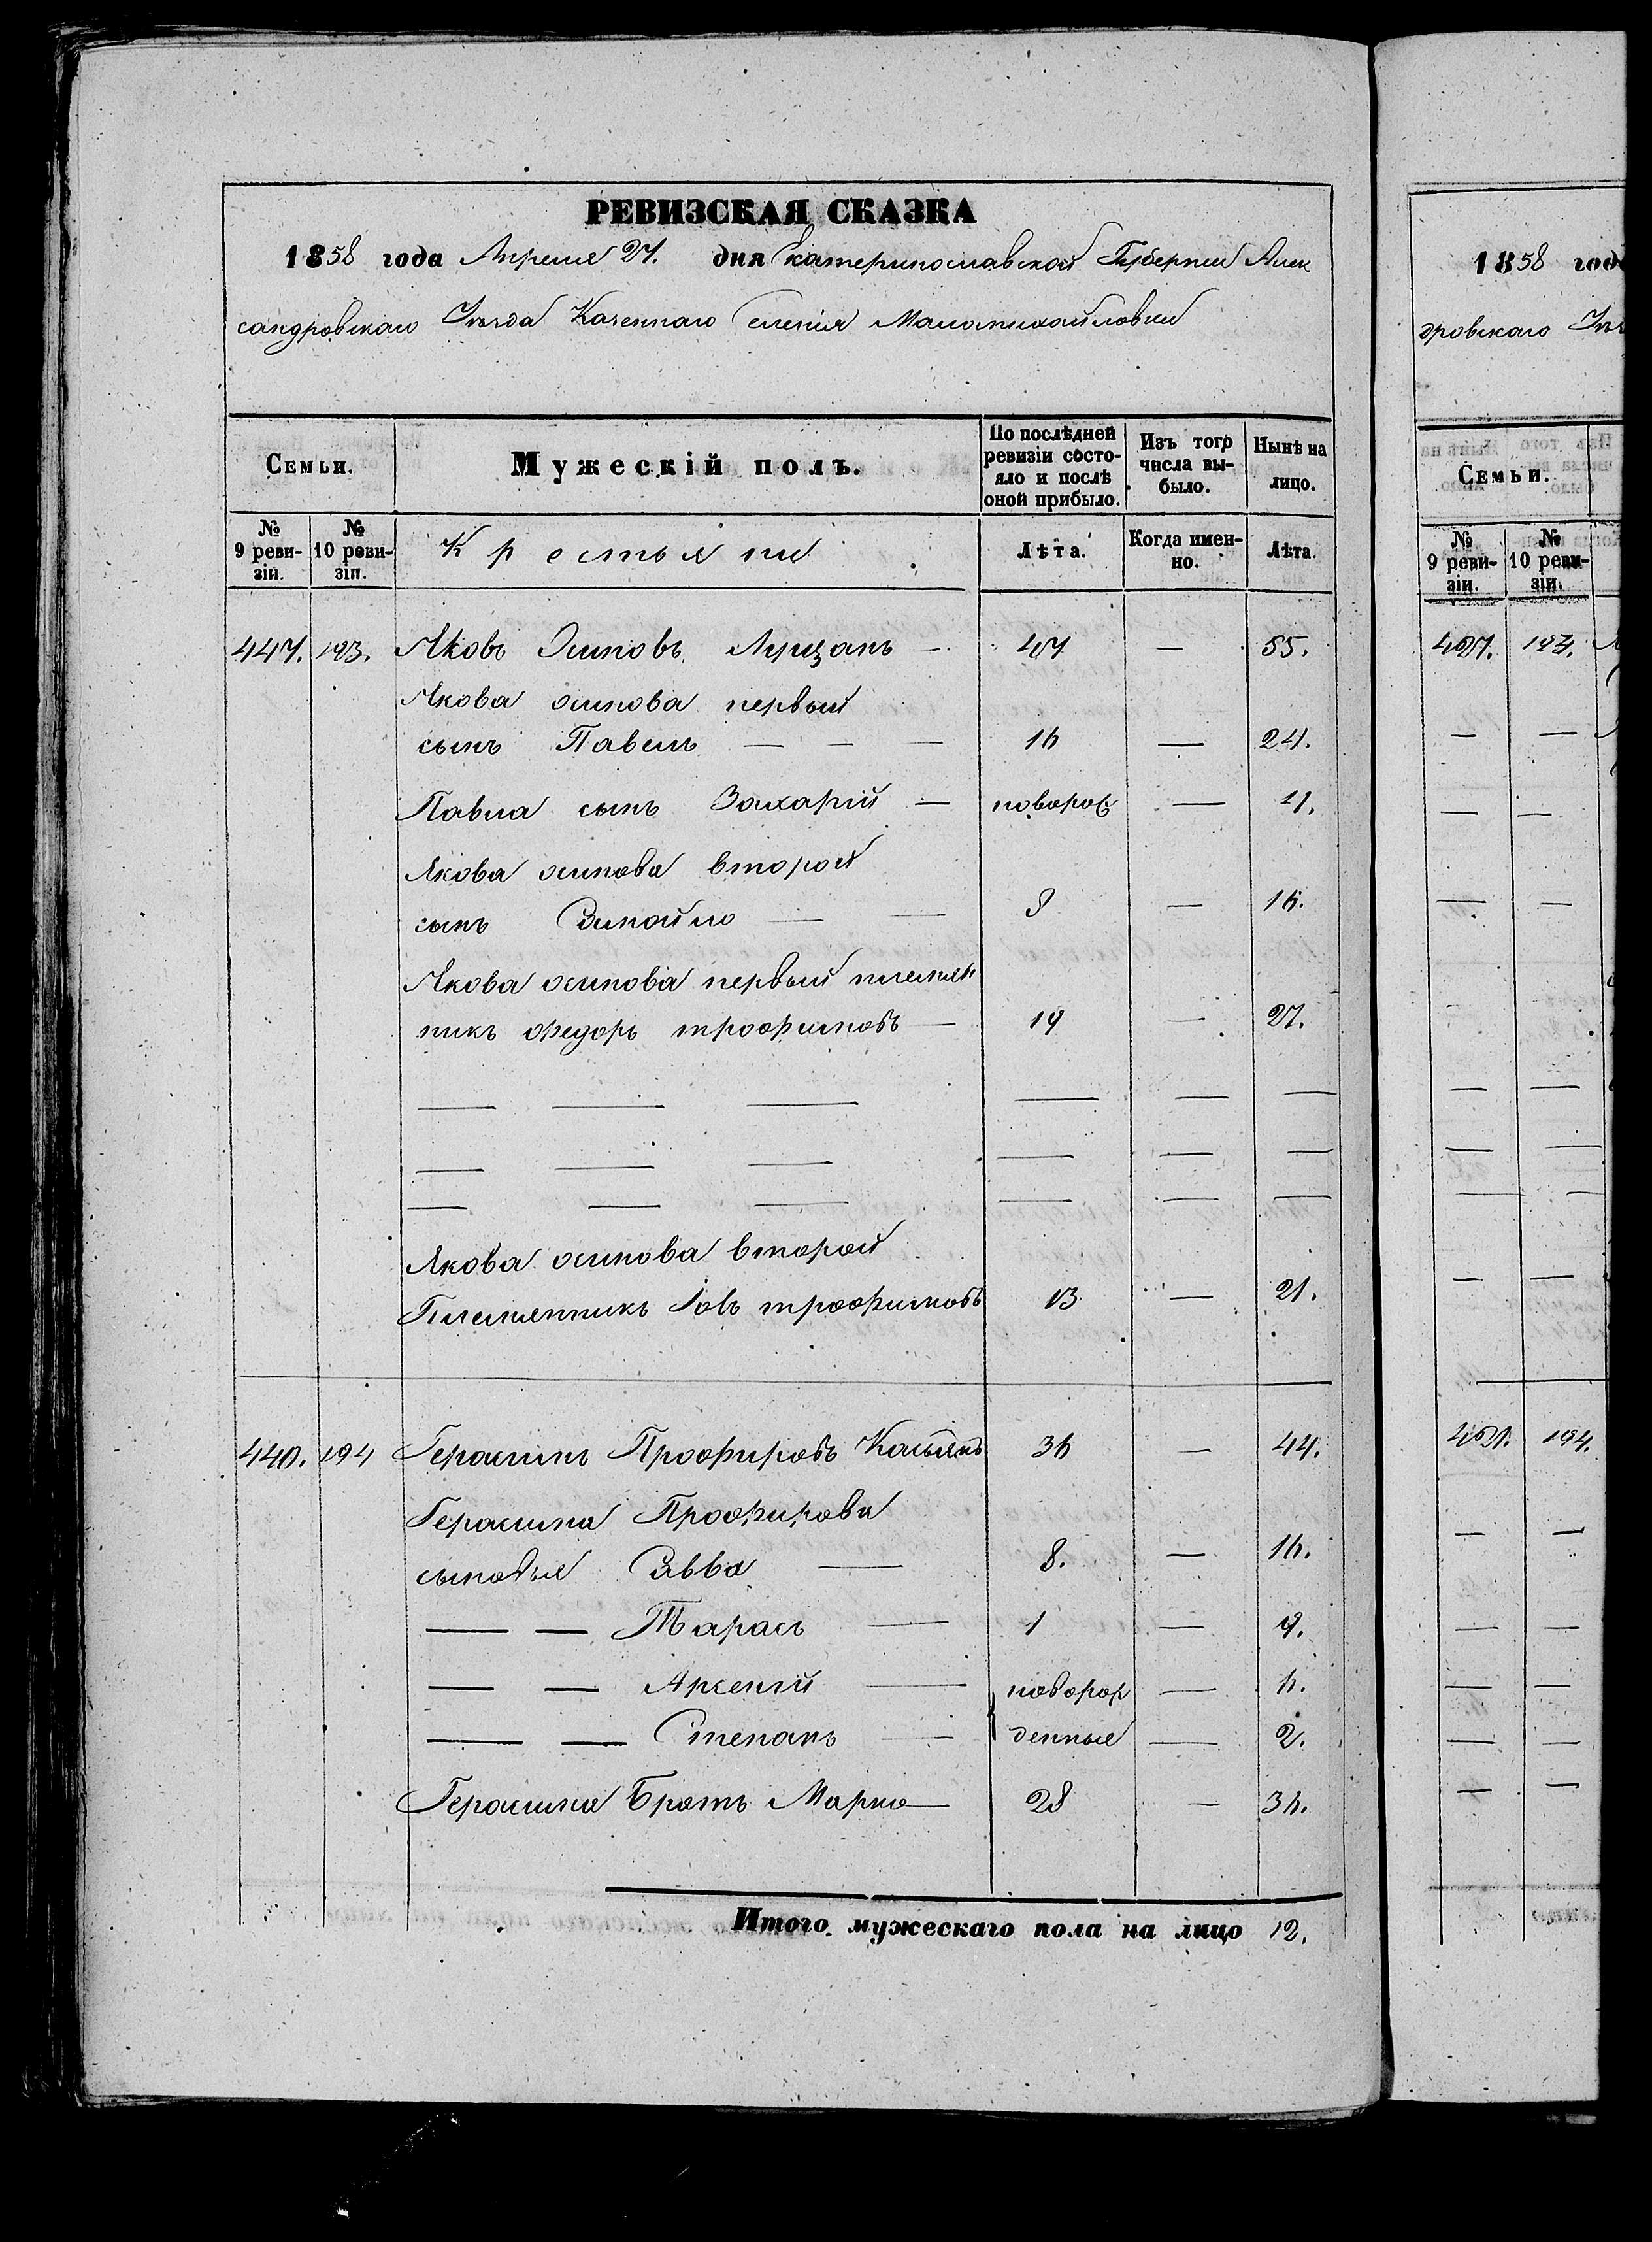 РЕВИЗСКАЯ СКАЗКА
1858 года Апреля 27. дня Екатеринославской Губернии Алек
сандровскаго Уезда Казеннаго Селенія Маломихайловки
Семьи.
Мужескій полъ.
По послѣдней ревизіи состояло и послѣ оной прибыло.
Изъ того числа выбыло.
Нынѣ на лицо.
№ 9 ревизій.
№ 10 ревизіи.
Крестьяне
Лѣта.
Когда именно.
Лѣта.
447. 193. Яковъ Осиповъ — 47 — 55.
Якова осипова первый
сынъ Павелъ — — — 16 — 24.
Павла сынъ Захарій — новорож — 4.
Якова осипова второй
сынъ Самойло — — 8 — 16.
Якова осипова первый племян
никъ Федоръ трофимовъ — 19 — 27.
— — — — — —
— — — — — —
— — — — — —
Якова осипова второй
Племянникъ Іовъ трофимовъ 13 — 21.
440. 194 Герасимъ Профировъ Касьянъ 36 — 44.
Герасима Профирова
сыновья Савва — 8. — 16.
— — Тарасъ — 1 — 9.
— — Арсеній — новорож — 6.
— — Степанъ — денные — 2.
Герасима Братъ Марко — 28 — 36.
Итого мужескаго пола на лицо 12.
1858 года
дровскаго Уез
Семьи.
№ 9 ревизіи.
№ 10 ревизіи.
193.
194.